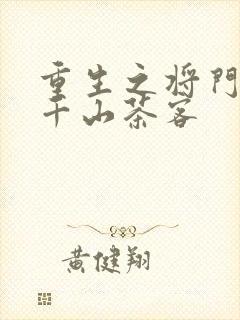 重生之将門
千山茶客
黄健翔